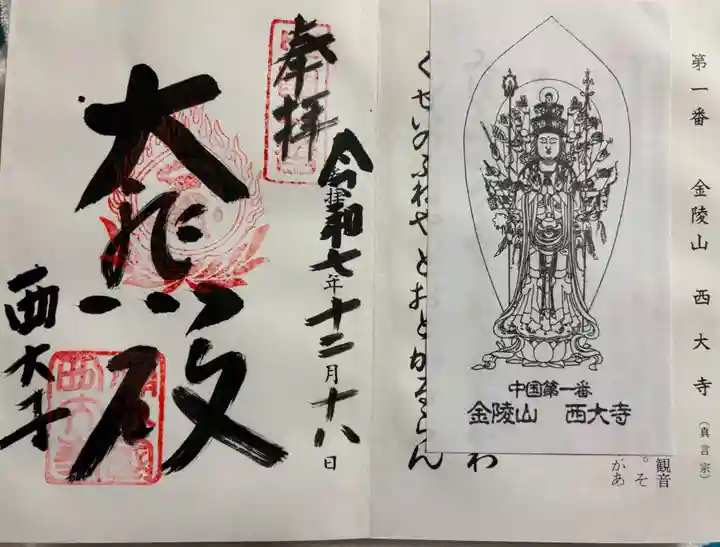 第一番 金陵山 西大寺(真言宗)
観音
。そ
があ
中国第一番
金陵山 西大寺
わ
くせいのふねや とおとかるらん
奉拝
令和七年十二月十八日
大悲殿
西大寺